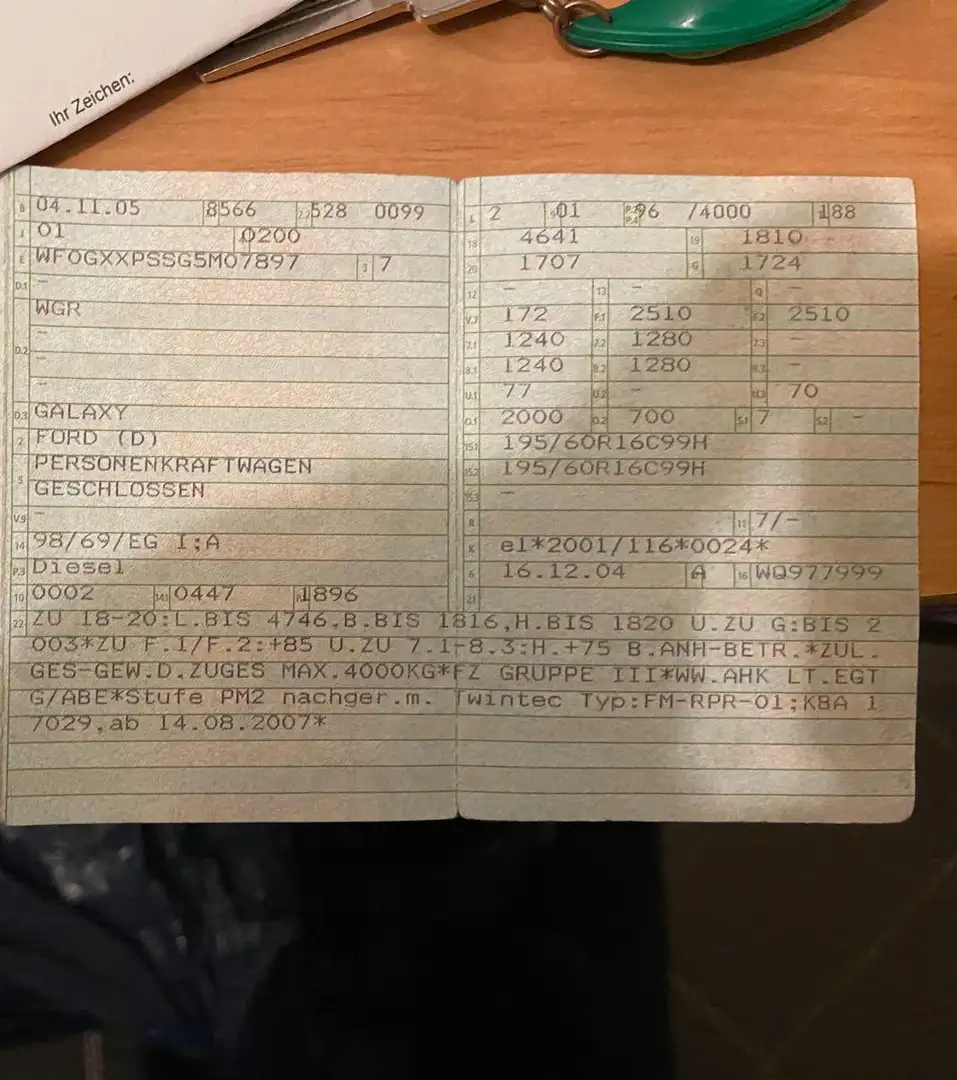 Ihr Zeichen:
B 04.11.05 8566 2.2 528 0099
J 01 0200
E WF0GXXPSSG5M07897 3 7
D.1 -
WGR
-
D.2 -
-
D.3 GALAXY
2 FORD (D)
5 PERSONENKRAFTWAGEN
GESCHLOSSEN
V.9 -
14 98/69/EG I;A
P.3 Diesel
10 0002 14.1 0447 P.1 1896
L 2 9 01 P.2 P.4 96 /4000 T 188
18 4641 19 1810
20 1707 G 1724
12 - 13 - Q -
V.7 172 F.1 2510 F.2 2510
7.1 1240 7.2 1280 7.3 -
8.1 1240 8.2 1280 8.3 -
U.1 77 U.2 - U.3 70
O.1 2000 O.2 700 S.1 7 S.2 -
15.1 195/60R16C99H
15.2 195/60R16C99H
15.3 -
R 11 7/-
K e1*2001/116*0024*
6 16.12.04 17 A 16 WQ977999
21
22 ZU 18-20:L.BIS 4746,B.BIS 1816,H.BIS 1820 U.ZU G:BIS 2
003*ZU F.1/F.2:+85 U.ZU 7.1-8.3:H.+75 B.ANH-BETR.*ZUL.
GES-GEW.D.ZUGES MAX.4000KG*FZ GRUPPE III*WW.AHK LT.EGT
G/ABE*Stufe PM2 nachger.m. Twintec Typ:FM-RPR-01;KBA 1
7029,ab 14.08.2007*